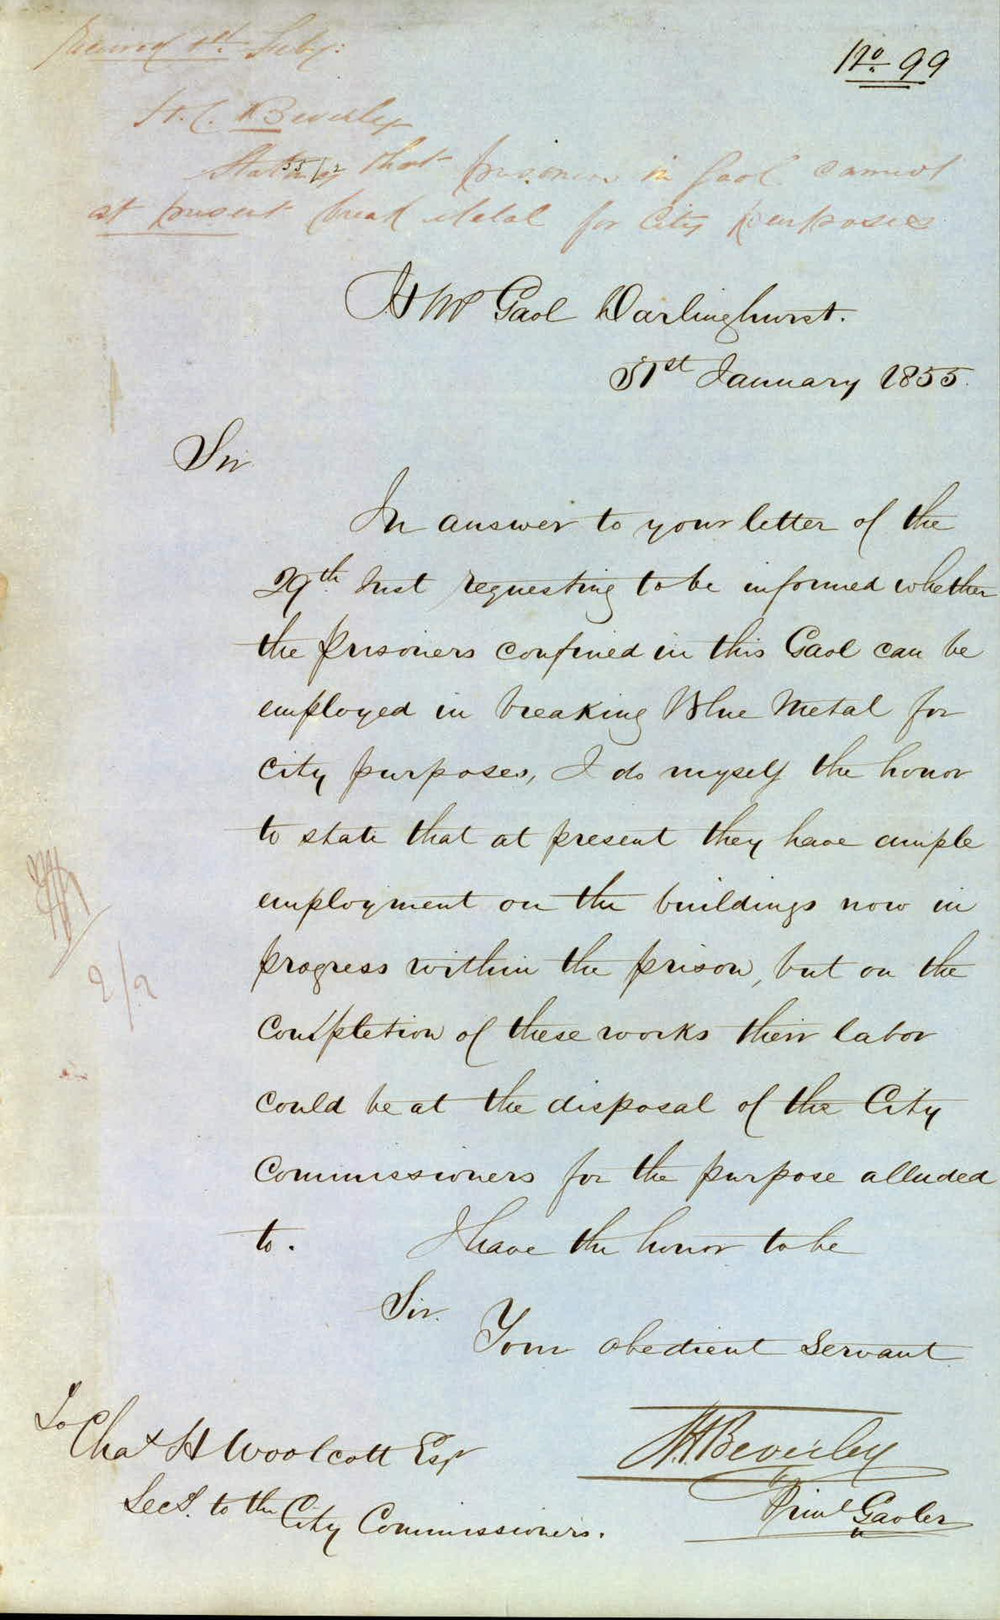 No. 99
Received 1st Feby:
H. C. Beverley
Stating that prisoners in Gaol cannot
at present break Metal for City purposes
55/2
H M Gaol Darlinghurst.
31st January 1855.
Sir
In answer to your letter of the
29th Inst requesting to be informed whether
the prisoners confined in this Gaol can be
employed in breaking Blue Metal for
City purposes, I do myself the honor
to state that at present they have ample
employment on the buildings now in
progress within the prison, but on the
Completion of these works their labor
could be at the disposal of the City
Commissioners for the purpose alluded
to. I have the honor to be
Sir.
Your obedient Servant
H. Beverley
Prinl Gaoler
To Chas H Woolcott Esqr
Secy. to the City Commissioners.
2/2